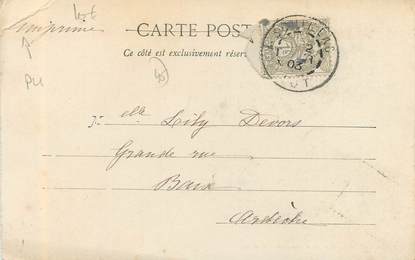 Imprimé
Lot
CARTE POST
Ce côté est exclusivement réservé
PLI
Mlle Lily Devors
Grande rue
Baix
Ardèche